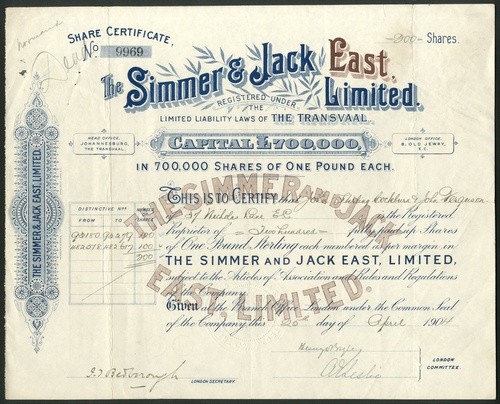 SHARE CERTIFICATE,
No 9969
200 Shares.
The Simmer & Jack East, Limited.
REGISTERED UNDER
THE
LIMITED LIABILITY LAWS OF THE TRANSVAAL.
HEAD OFFICE,
JOHANNESBURG,
THE TRANSVAAL.
CAPITAL £700,000,
LONDON OFFICE,
8, OLD JEWRY,
E.C.
IN 700,000 SHARES OF ONE POUND EACH.
THE SIMMER & JACK EAST, LIMITED
THE SIMMER AND JACK
EAST, LIMITED.
This is to Certify that John & John Ferguson
of Nicholas Lane E.C. the Registered
Proprietor of Two hundred Shares
of One Pound Sterling each numbered as per margin in
THE SIMMER AND JACK EAST, LIMITED,
subject to the Articles of Association and Rules and Regulations
of the Company.
Given at the Branch Office London under the Common Seal
of the Company, this day of April 1904
DISTINCTIVE Nos
NUMBER
FROM TO
100
100
200
LONDON
COMMITTEE.
LONDON SECRETARY.